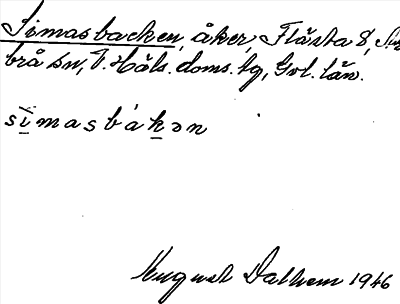 Simasbacken, åker, Flästa 8, Arbrå sn, N. Häls. doms. bg, Gvl. län.
sìmasbákən
August Dalhem 1946